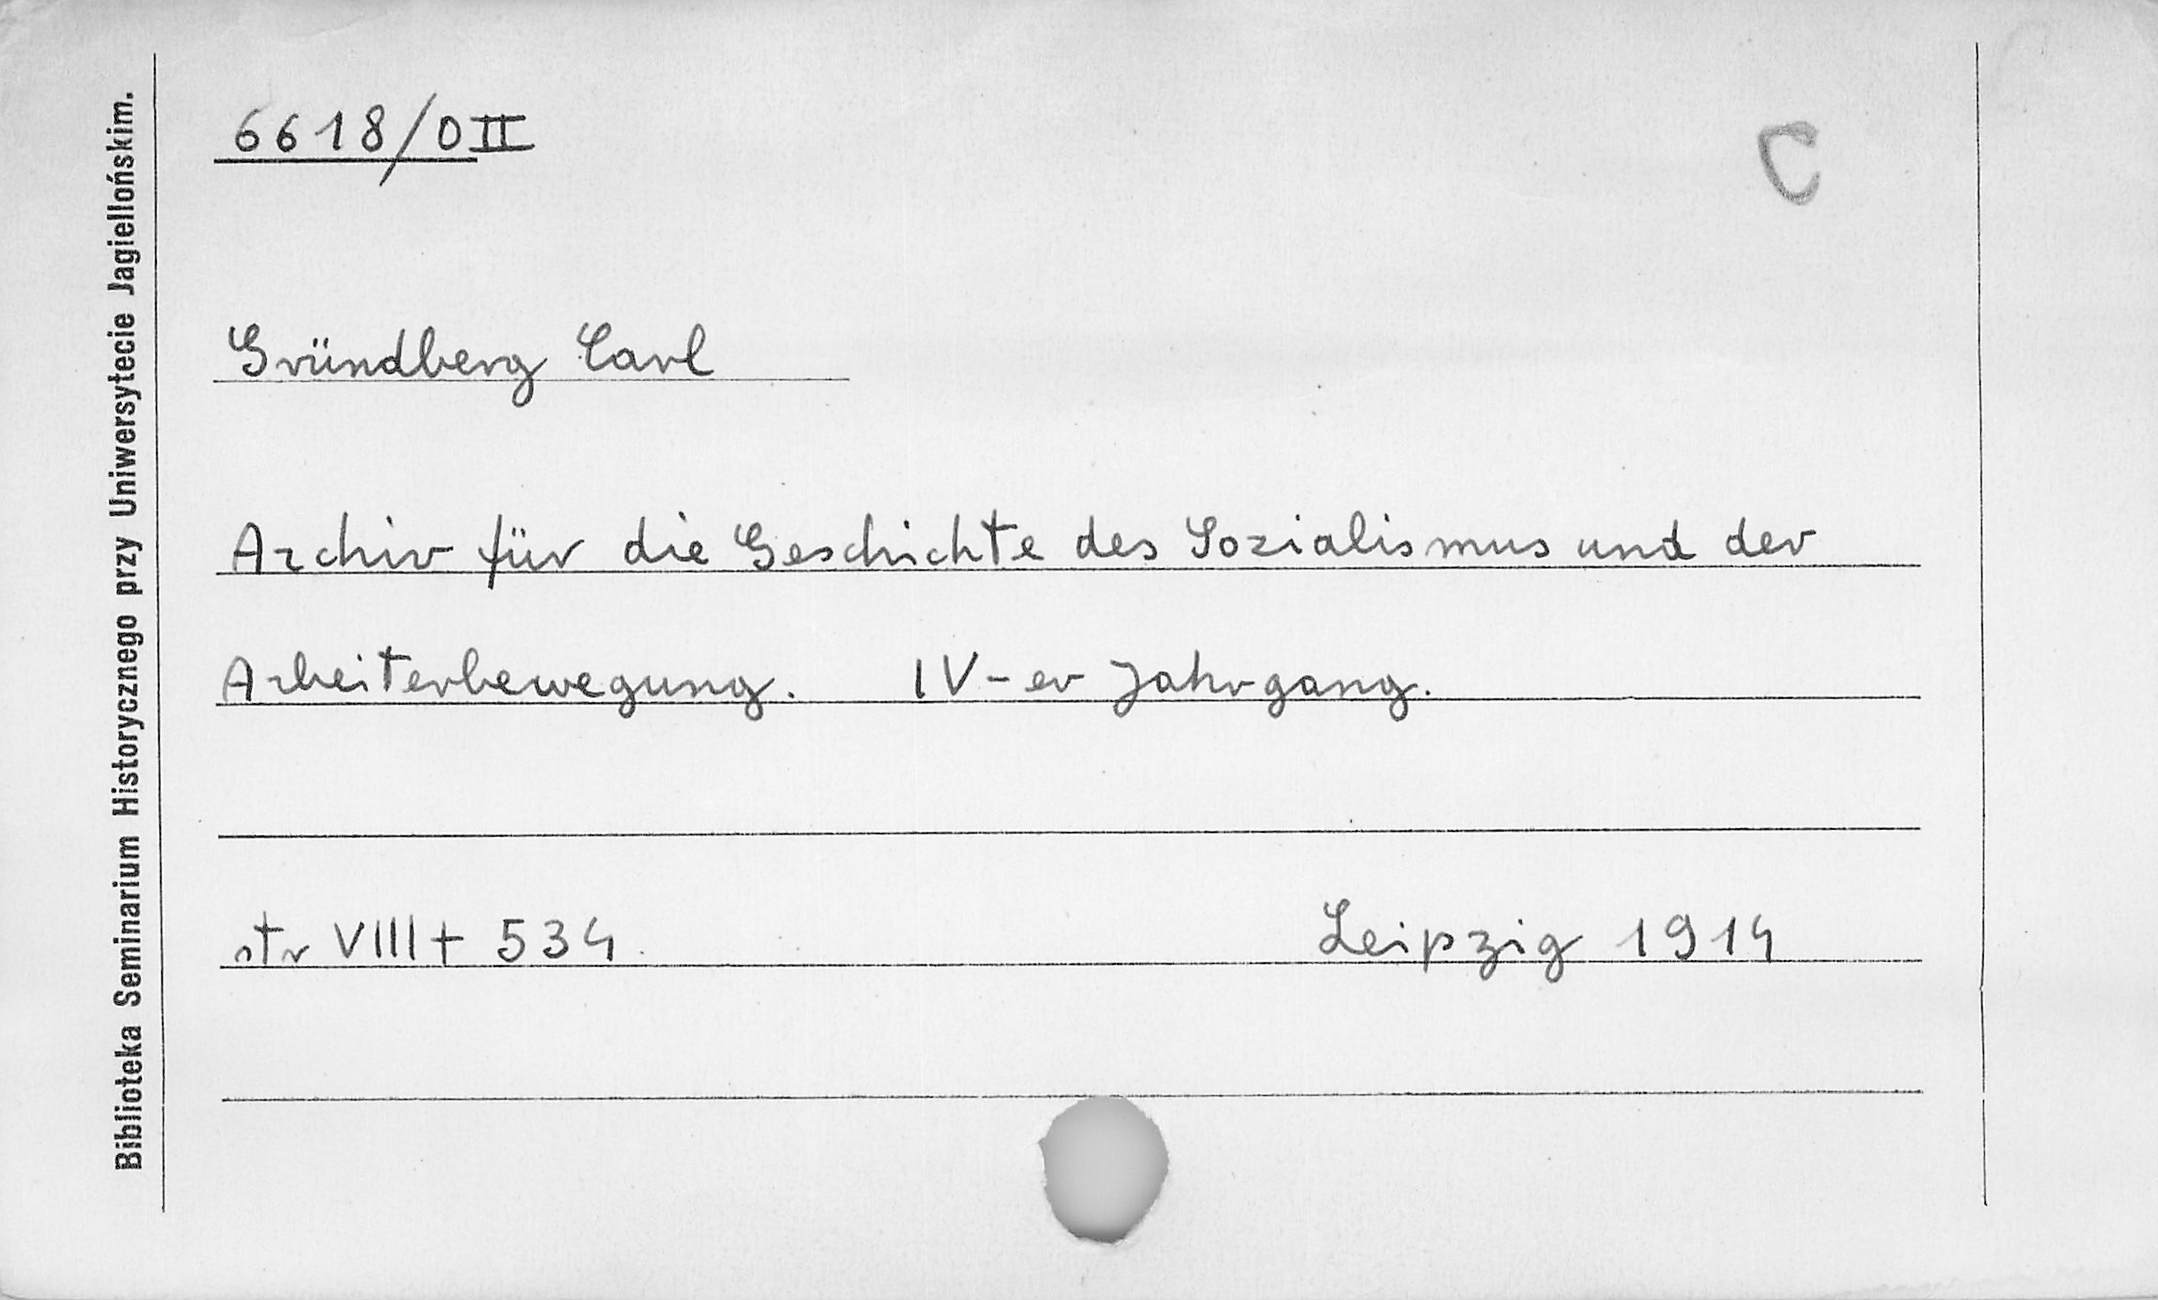 Biblioteka Seminarium Historycznego przy Uniwersytecie Jagiellońskim.
6618/0II
C
Gründberg Carl
Archiv für die Geschichte des Sozialismus und der
Arbeiterbewegung. IV-er Jahrgang.
str VIII + 534.
Leipzig 1914